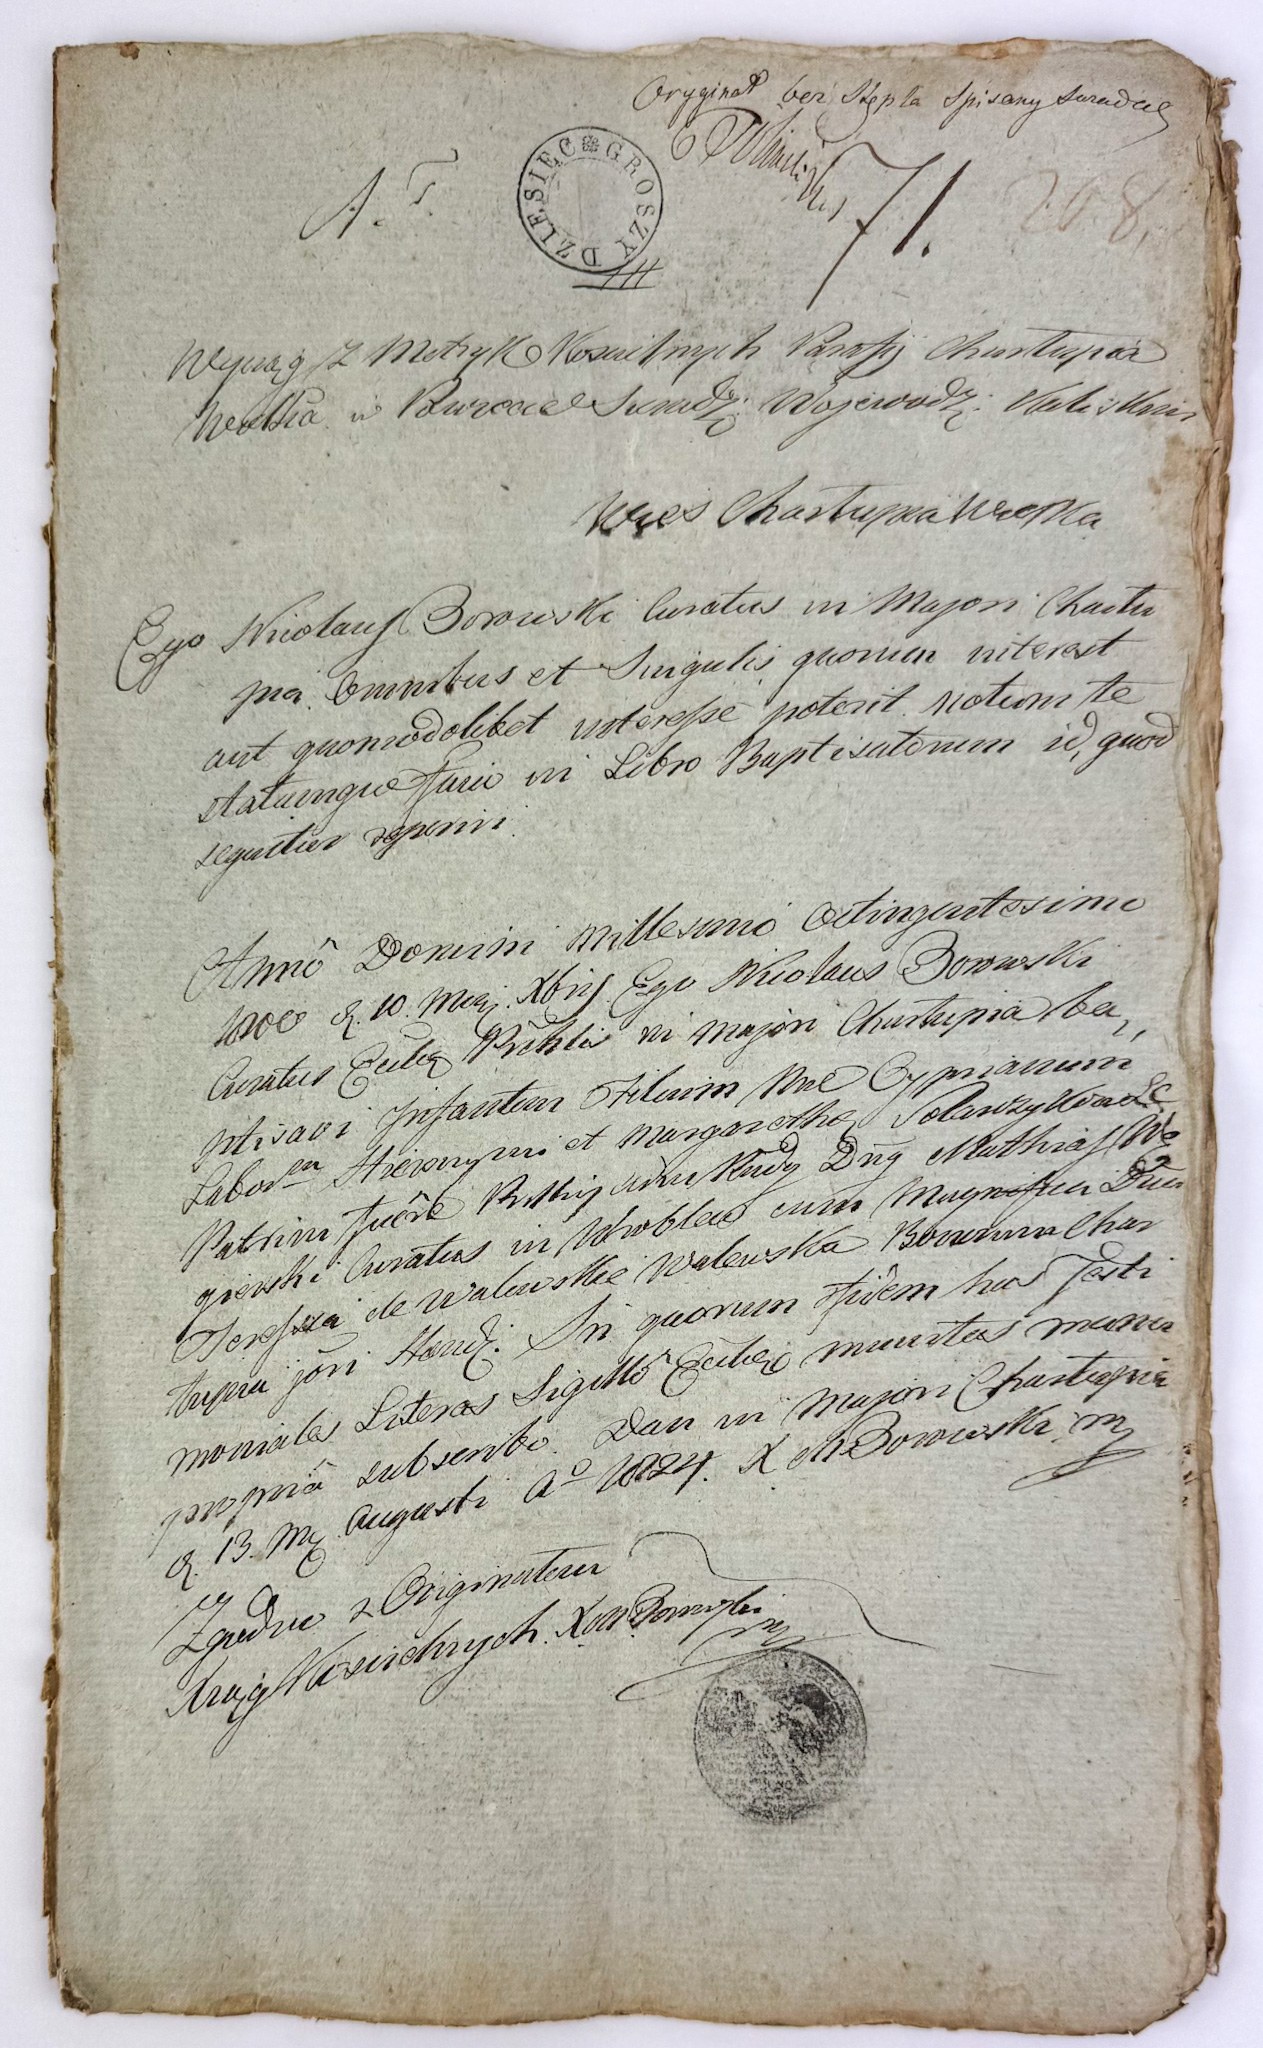 Oryginał bez Stępla Spisany
A.
DZIESIĘC GROSZY
71.
208.
Wyciąg z Metryk Koscielnych Parafij Chartupia
Wielka w Powiecie Sieradz: Wojewodz: Kaliskim
Wies Chartupia Wielka
Ego Nicolaus Borowski Curatus in Majori Chartu
pia. Omnibus et Singulis, quorum interest
aut quomodolibet interesse poterit notum te
statumque facio in Libro Baptisatorum id, quod
sequitur reperiri.
Anno Domini Millesimo Octingentesimo
1800 d. 10. Xbris. Ego Nicolaus Borowski
Curatus in Majori Chartupia ba,
ptisavi Infantem Filium Cyprianum
Labor: Hieronymi et Margarethe
Patrini fuere Dng Mathias We
gierski Curatus in Wroblew cum Magnifica
Teressia de Walewskie Walewska Bonorum Char
tupia Hered: In quorum fidem has Testi
moniales Literas Sigillo munitas manu
propria subscribo. Dan in Majori Chartupia
d. 13. Augusti A° 1824. X M Borowski
Zgodno z Originałem
Xiąg Kosicielnych. X M Borowski